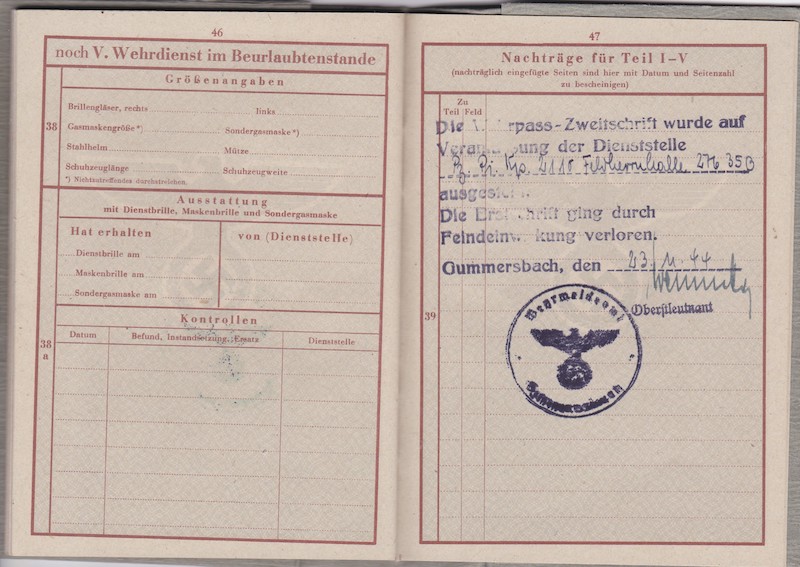 46
noch V. Wehrdienst im Beurlaubtenstande
38
Größenangaben
Brillengläser, rechts links
Gasmaskengröße*) Sondergasmaske*)
Stahlhelm Mütze
Schuhzeuglänge Schuhzeugweite
*) Nichtzutreffendes durchstreichen.
Ausstattung
mit Dienstbrille, Maskenbrille und Sondergasmaske
Hat erhalten von (Dienststelle)
Dienstbrille am
Maskenbrille am
Sondergasmaske am
38 a
Kontrollen
Datum Befund, Instandsetzung, Ersatz Dienststelle
47
Nachträge für Teil I–V
(nachträglich eingefügte Seiten sind hier mit Datum und Seitenzahl
zu bescheinigen)
39
Zu
Teil Feld
Die pass-Zweitschrift wurde auf
der Dienststelle
Pz. Pi. Kp. 2118 Feldherrnhalle
Die ging durch
verloren.
Gummersbach, den 23. 11. 44
Oberstleutnant
Wehrmeldeamt